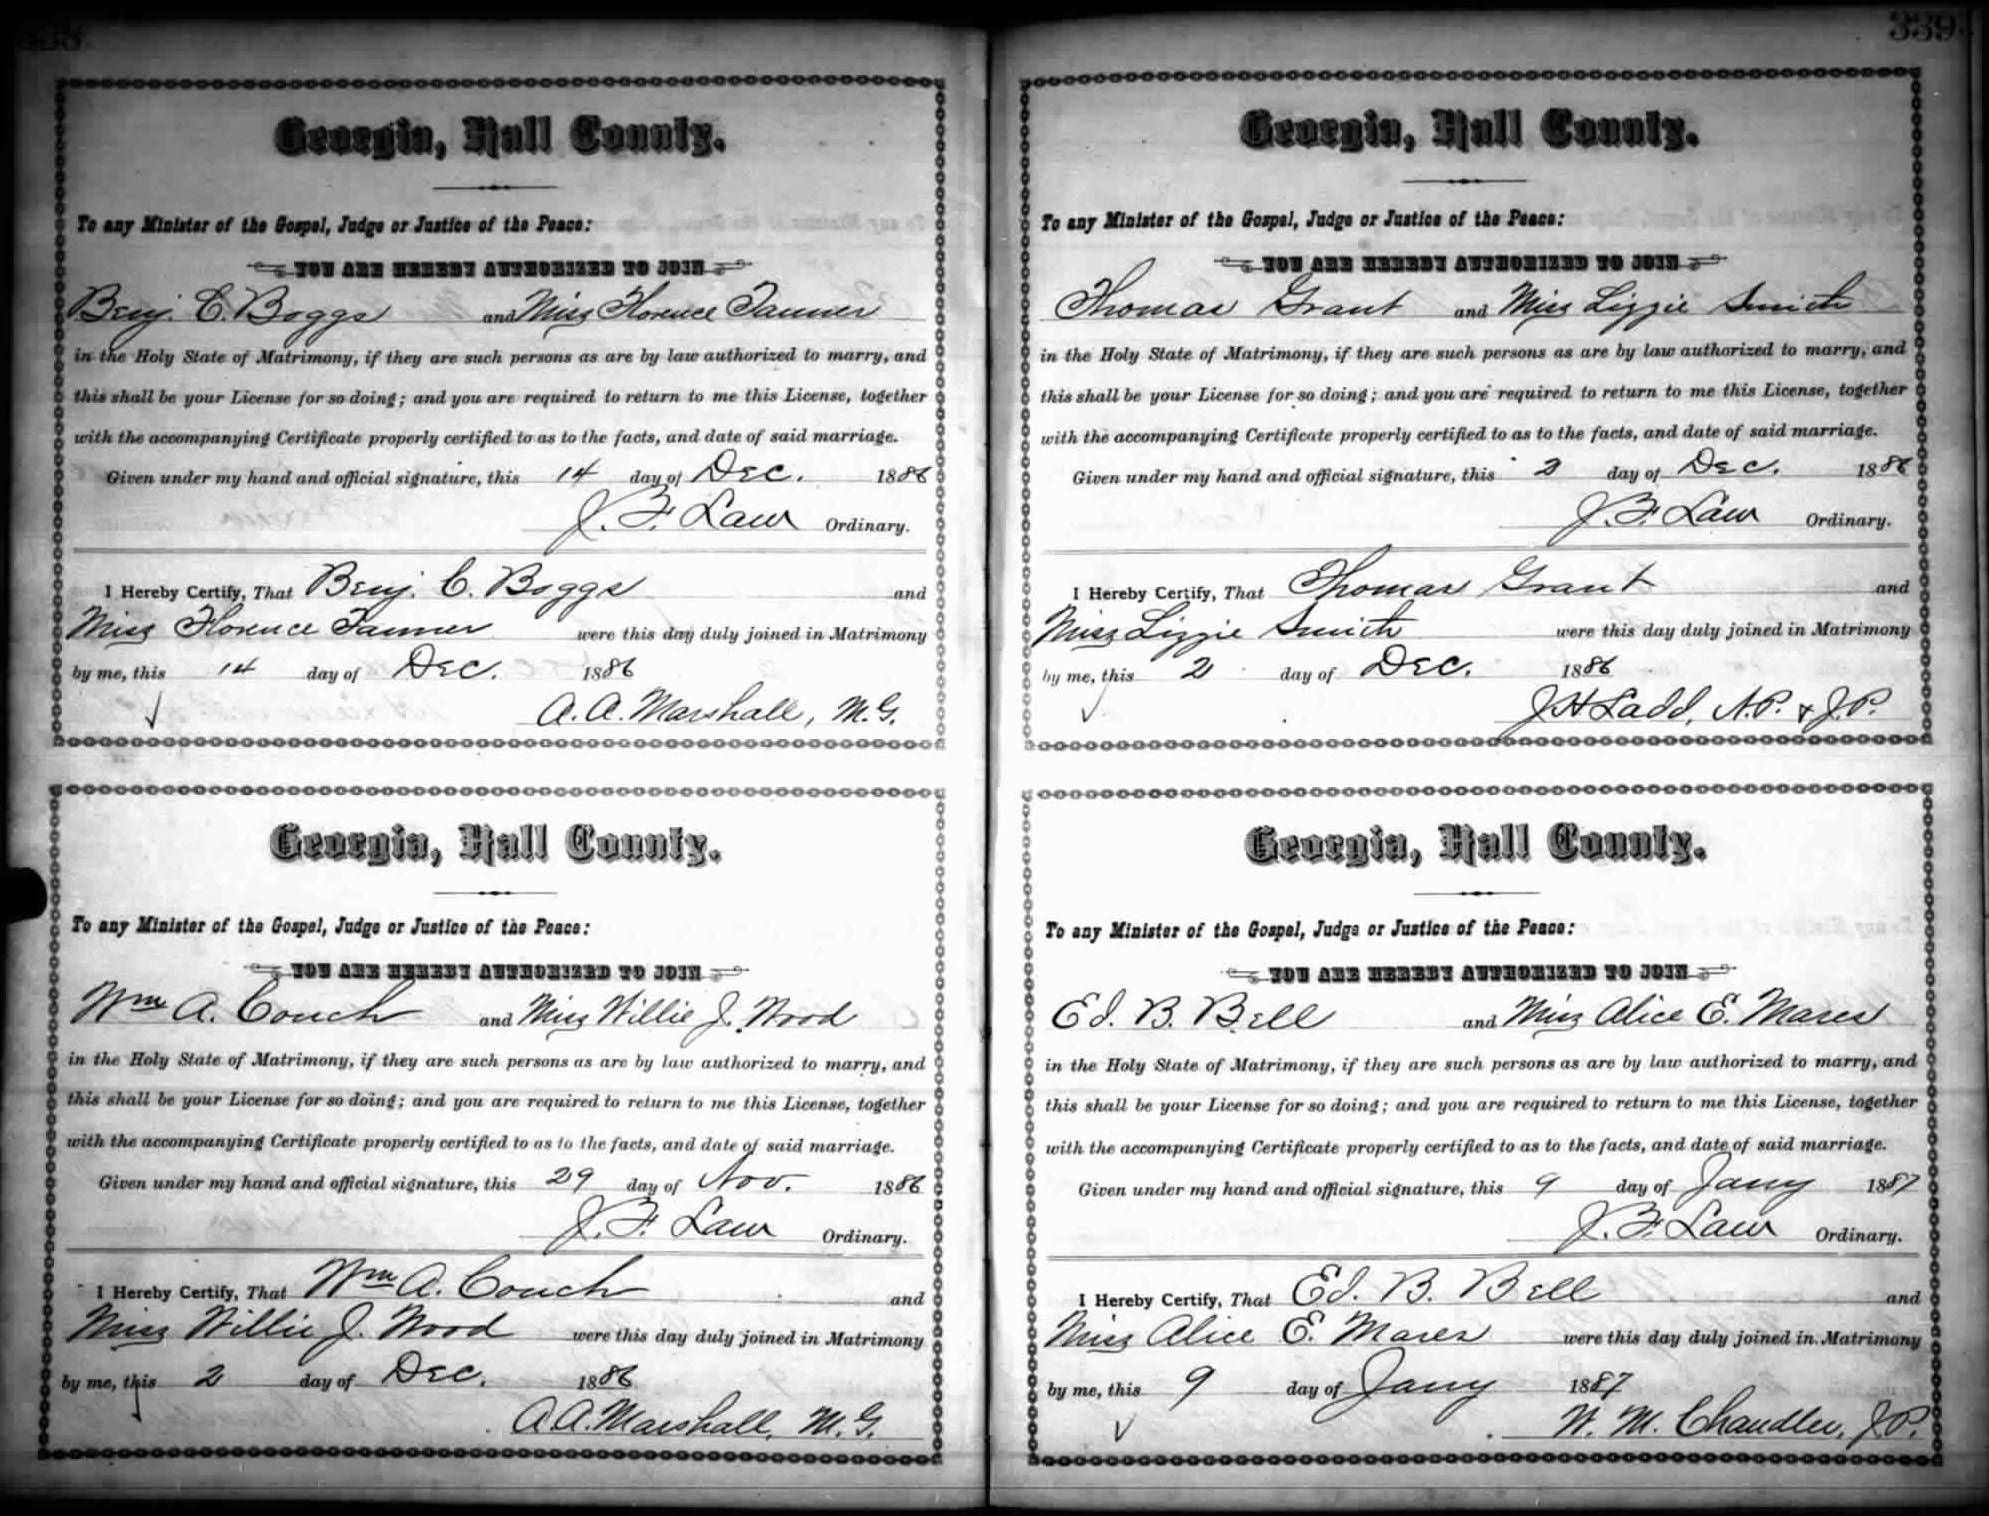 338
Georgia, Hall County.
To any Minister of the Gospel, Judge or Justice of the Peace:
YOU ARE HEREBY AUTHORIZED TO JOIN
Benj. C. Boggs and Miss Florence Tanner
in the Holy State of Matrimony, if they are such persons as are by law authorized to marry, and
this shall be your License for so doing; and you are required to return to me this License, together
with the accompanying Certificate properly certified to as to the facts, and date of said marriage.
Given under my hand and official signature, this 14 day of Dec. 1886
J. F. Law Ordinary.
I Hereby Certify, That Benj. C. Boggs and
Miss Florence Tanner were this day duly joined in Matrimony
by me, this 14 day of Dec. 1886
A. A. Marshall, M.G.
Georgia, Hall County.
To any Minister of the Gospel, Judge or Justice of the Peace:
YOU ARE HEREBY AUTHORIZED TO JOIN
Wm A. Couch and Miss Willie J. Wood
in the Holy State of Matrimony, if they are such persons as are by law authorized to marry, and
this shall be your License for so doing; and you are required to return to me this License, together
with the accompanying Certificate properly certified to as to the facts, and date of said marriage.
Given under my hand and official signature, this 29 day of Nov. 1886
J. F. Law Ordinary.
I Hereby Certify, That Wm A. Couch and
Miss Willie J. Wood were this day duly joined in Matrimony
by me, this 2 day of Dec. 1886
A. A. Marshall, M.G.
339
Georgia, Hall County.
To any Minister of the Gospel, Judge or Justice of the Peace:
YOU ARE HEREBY AUTHORIZED TO JOIN
Thomas Grant and Miss Lizzie Smith
in the Holy State of Matrimony, if they are such persons as are by law authorized to marry, and
this shall be your License for so doing; and you are required to return to me this License, together
with the accompanying Certificate properly certified to as to the facts, and date of said marriage.
Given under my hand and official signature, this 2 day of Dec. 1886
J. F. Law Ordinary.
I Hereby Certify, That Thomas Grant and
Miss Lizzie Smith were this day duly joined in Matrimony
by me, this 2 day of Dec. 1886
J H Ladd, N.P. & J.P.
Georgia, Hall County.
To any Minister of the Gospel, Judge or Justice of the Peace:
YOU ARE HEREBY AUTHORIZED TO JOIN
Ed. B. Bell and Miss Alice E. Mares
in the Holy State of Matrimony, if they are such persons as are by law authorized to marry, and
this shall be your License for so doing; and you are required to return to me this License, together
with the accompanying Certificate properly certified to as to the facts, and date of said marriage.
Given under my hand and official signature, this 9 day of Jany 1887
J. F. Law Ordinary.
I Hereby Certify, That Ed. B. Bell and
Miss Alice E. Mares were this day duly joined in Matrimony
by me, this 9 day of Jany 1887
W. M. Chandler, J.P.